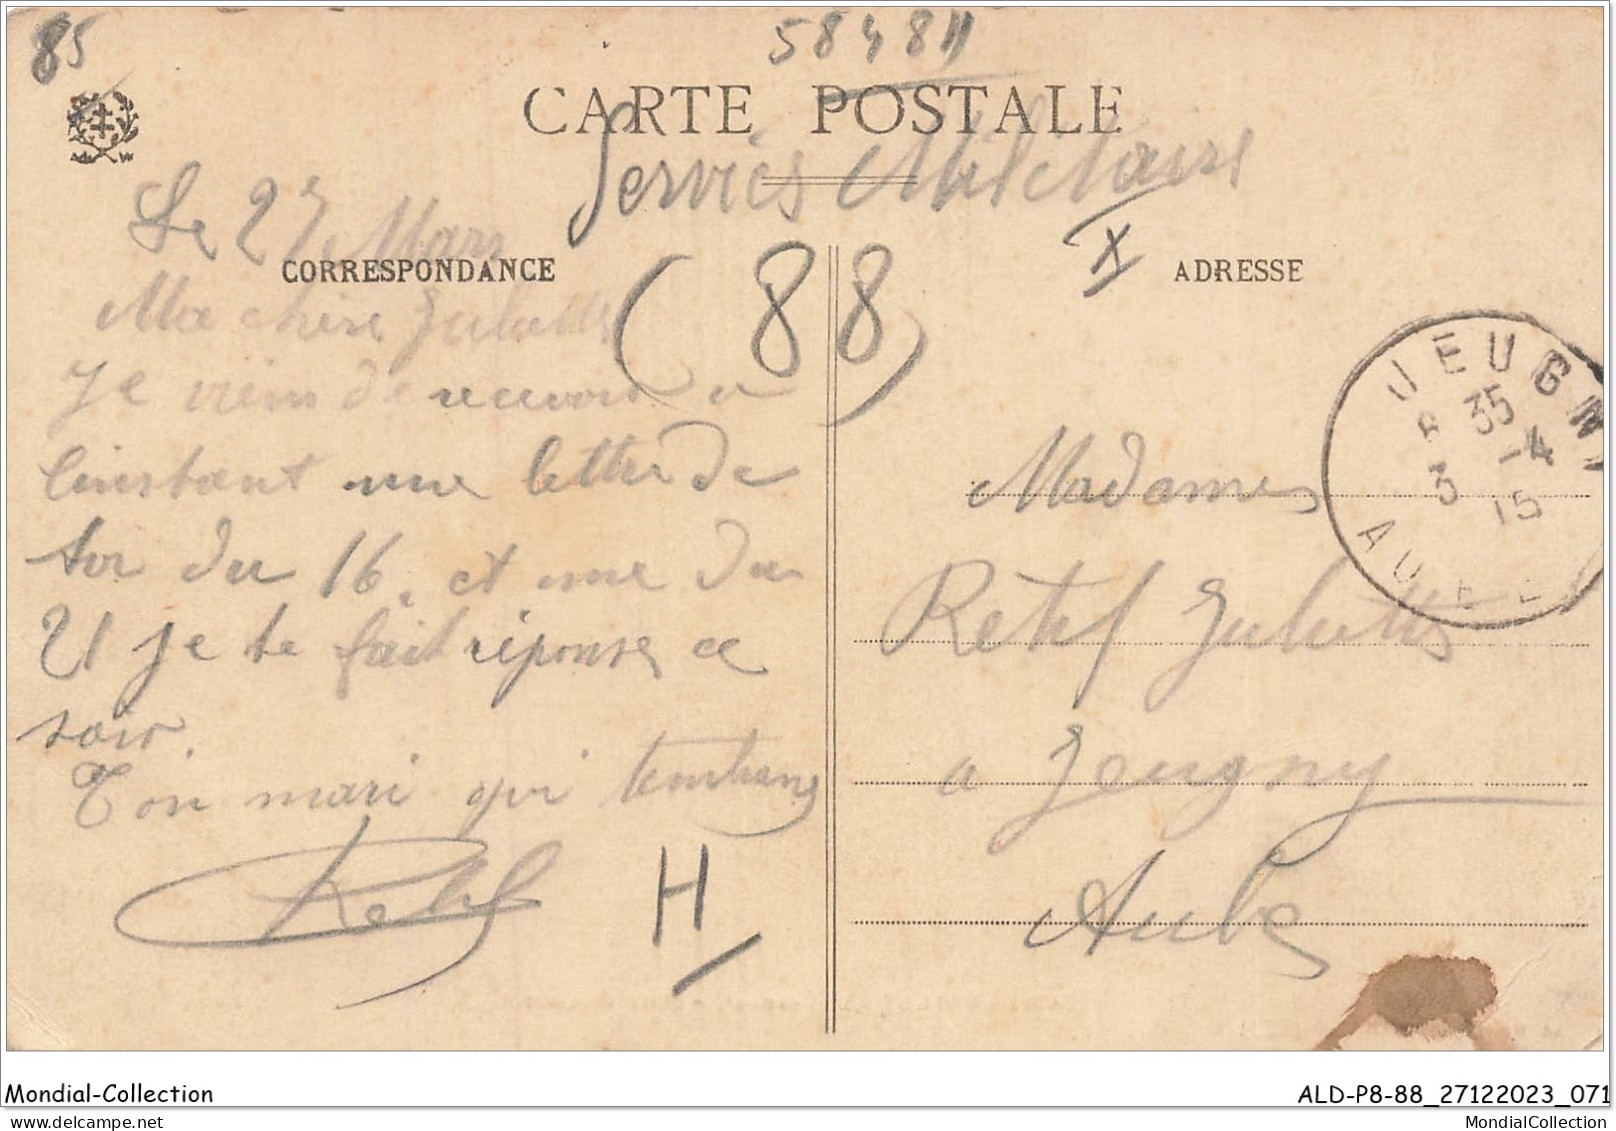 85
58488
CARTE POSTALE
Services Militaire
Le 27 Mars
CORRESPONDANCE
(88)
X
ADRESSE
Ma chère Juliette
Je viens de recevoir a
linstant une lettre de
toi du 16. et une du
21 je te fait réponse ce
soir.
Ton mari qui tembrans
Retif
H
JEUGNY
8 35
3 -4
15
AUBE
Madame
Retif Juliette
a Jeugny
Aube
Mondial-Collection
ALD-P8-88_27122023_071
MondialCollection